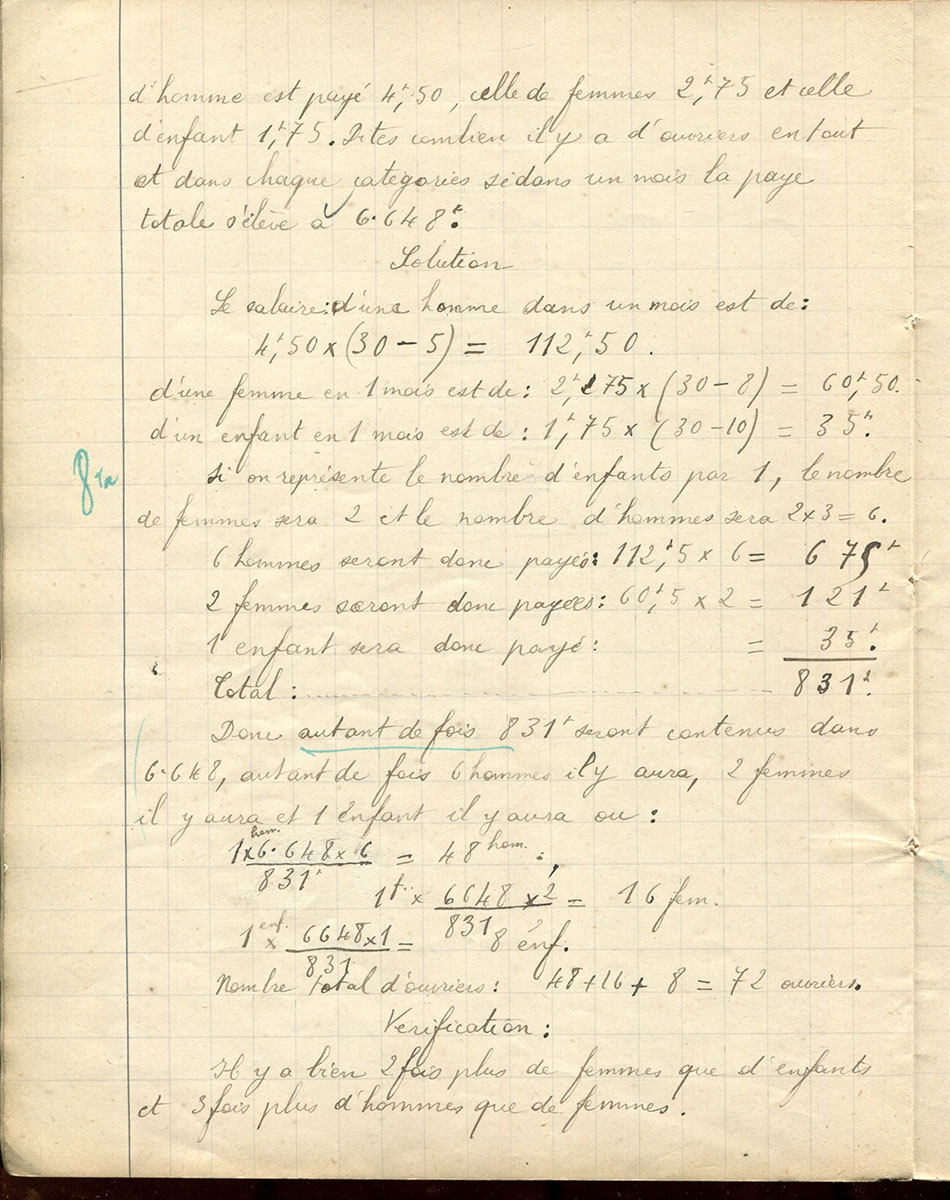 d'homme est payé 4f,50, celle de femmes 2f,75 et celle
d'enfant 1f,75. Dites combien il y a d'ouvriers en tout
et dans chaque categories si dans un mois la paye
totale s'élève à 6.648f.
Solution
Le salaire: d'une homme dans un mois est de:
4f,50 x (30 - 5) = 112f,50.
d'une femme en 1 mois est de: 2f,75 x (30 - 8) = 60f,50.
d'un enfant en 1 mois est de: 1f,75 x (30 - 10) = 35f.
Si on représente le nombre d'enfants par 1, le nombre
de femmes sera 2 et le nombre d'hommes sera 2x3 = 6.
6 hommes seront donc payés: 112f,5 x 6 = 675f
2 femmes seront donc payées: 60f,5 x 2 = 121f
1 enfant sera donc payé: = 35f.
Total: 831f.
Donc autant de fois 831f seront contenus dans
6.648, autant de fois 6 hommes il y aura, 2 femmes
il y aura et 1 enfant il y aura ou:
1 hom. x 6.648 x 6 / 831f = 48 hom.;
1f. x 6648 x 2 / 831 = 16 fem.
1 enf. x 6648 x 1 / 831 = 8 enf.
Nombre total d'ouvriers: 48 + 16 + 8 = 72 ouvriers.
Verification:
Il y a bien 2 fois plus de femmes que d'enfants
et 3 fois plus d'hommes que de femmes.